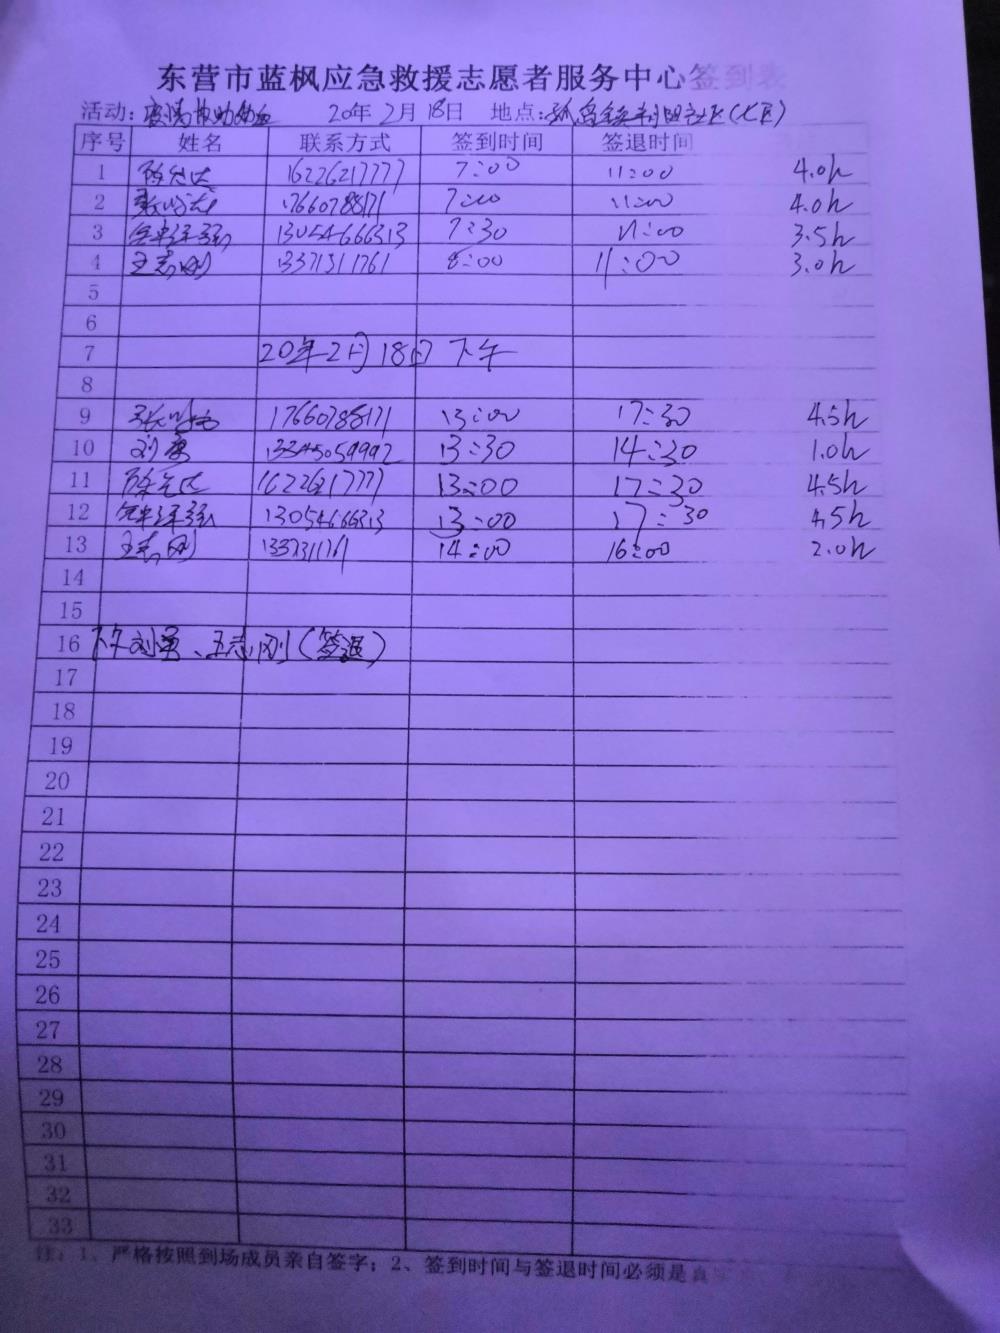 东营市蓝枫应急救援志愿者服务中心签到表
活动: 协助 20年 2月 18日 地点: 孤岛镇 社区(七区)
序号 姓名 联系方式 签到时间 签退时间
1 16226217777 7:00 11:00 4.0h
2 17660788171 7:00 11:00 4.0h
3 13054666313 7:30 11:00 3.5h
4 王志刚 13371311761 8:00 11:00 3.0h
5
6
7 20年2月18日 下午
8
9 17660788171 13:00 17:30 4.5h
10 刘勇 13345059992 13:30 14:30 1.0h
11 1622621777 13:00 17:30 4.5h
12 13054666313 13:00 17:30 4.5h
13 王志刚 14:00 16:00 2.0h
14
15
16 下午刘勇、王志刚(签退)
17
18
19
20
21
22
23
24
25
26
27
28
29
30
31
32
33
注: 1、严格按照到场成员亲自签字; 2、签到时间与签退时间必须是真